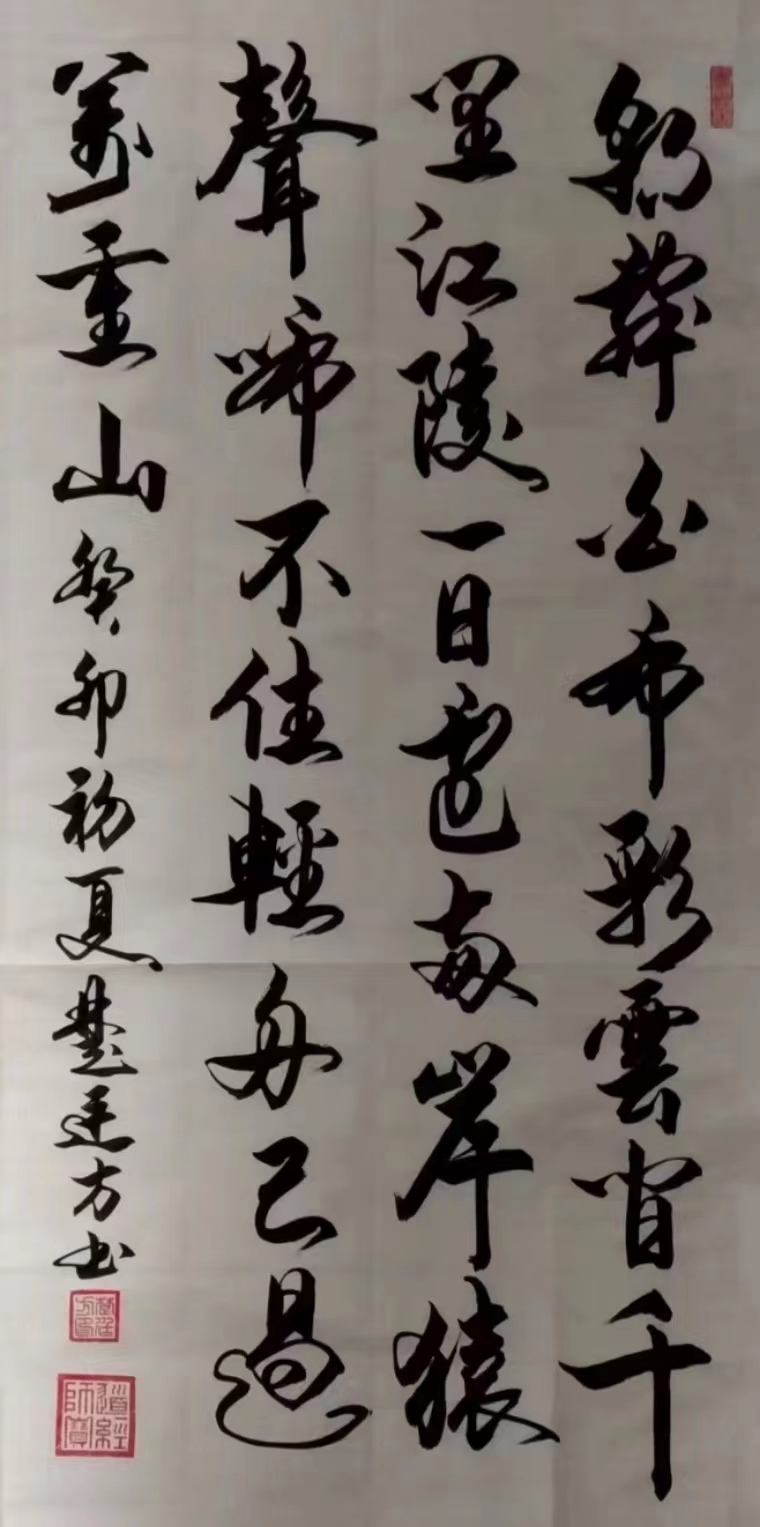 朝辭白帝彩雲間千
里江陵一日還兩岸猿
聲啼不住輕舟已過
萬重山癸卯初夏楚廷方书
道經師寶